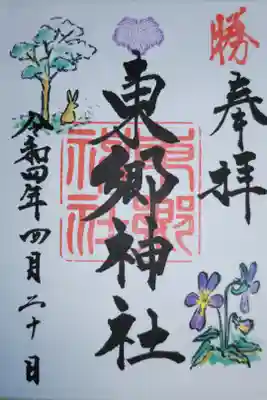 勝
奉拝
東郷神社
令和四年四月二十日